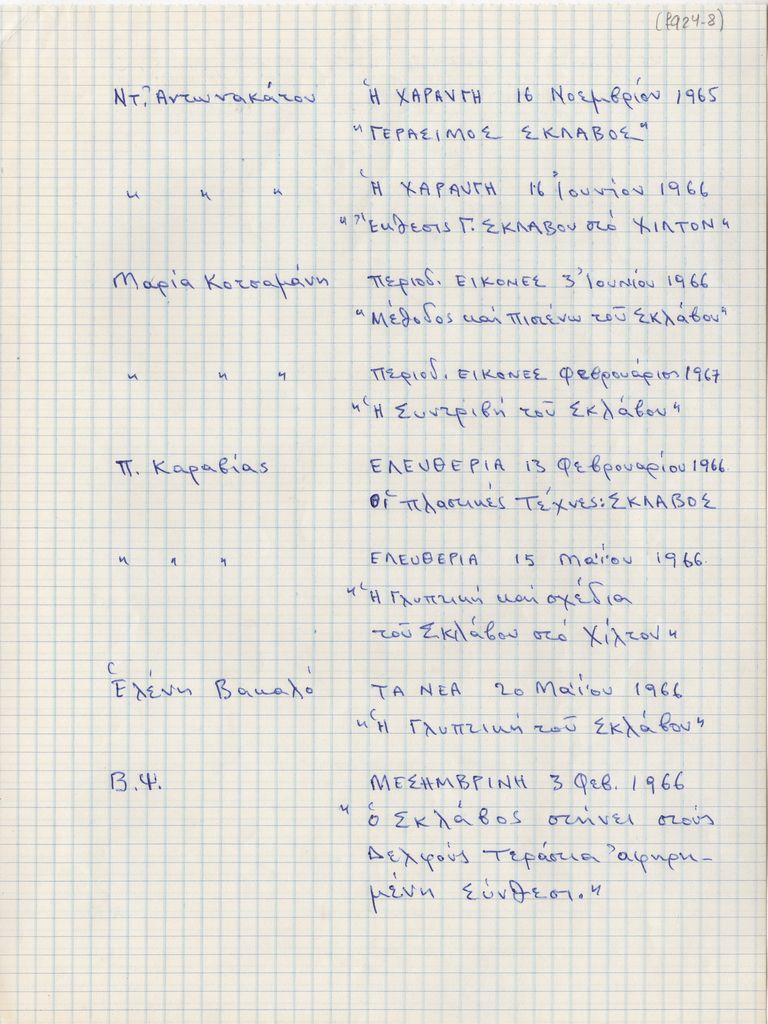 (f924-8)
Ντ. Ἀντωνακάτου Ἡ ΧΑΡΑΥΓΗ 16 Νοεμβρίου 1965
"ΓΕΡΑΣΙΜΟΣ ΣΚΛΑΒΟΣ"
" " " Ἡ ΧΑΡΑΥΓΗ 16 Ἰουνίου 1966
"Ἔκθεσις Γ. ΣΚΛΑΒΟΥ στό ΧΙΛΤΟΝ"
Μαρία Κοτσαμάνη περιοδ. ΕΙΚΟΝΕΣ 3 Ἰουνίου 1966
"Μέθοδος καί πιστεύω τοῦ Σκλάβου"
" " " περιοδ. ΕΙΚΟΝΕΣ Φεβρουάριος 1967
"Ἡ Συντριβή τοῦ Σκλάβου"
Π. Καραβίας ΕΛΕΥΘΕΡΙΑ 13 Φεβρουαρίου 1966
Οἱ πλαστικές Τέχνες: ΣΚΛΑΒΟΣ
" " " ΕΛΕΥΘΕΡΙΑ 15 Μαΐου 1966
"Ἡ Γλυπτική καί σχέδια
τοῦ Σκλάβου στό Χίλτον"
Ἑλένη Βακαλό ΤΑ ΝΕΑ 20 Μαΐου 1966
"Ἡ Γλυπτική τοῦ Σκλάβου"
Β.Ψ. ΜΕΣΗΜΒΡΙΝΗ 3 Φεβ. 1966
"Ὁ Σκλάβος στήνει στούς
Δελφούς Τεράστια ἀφηρη-
μένη Σύνθεσι."